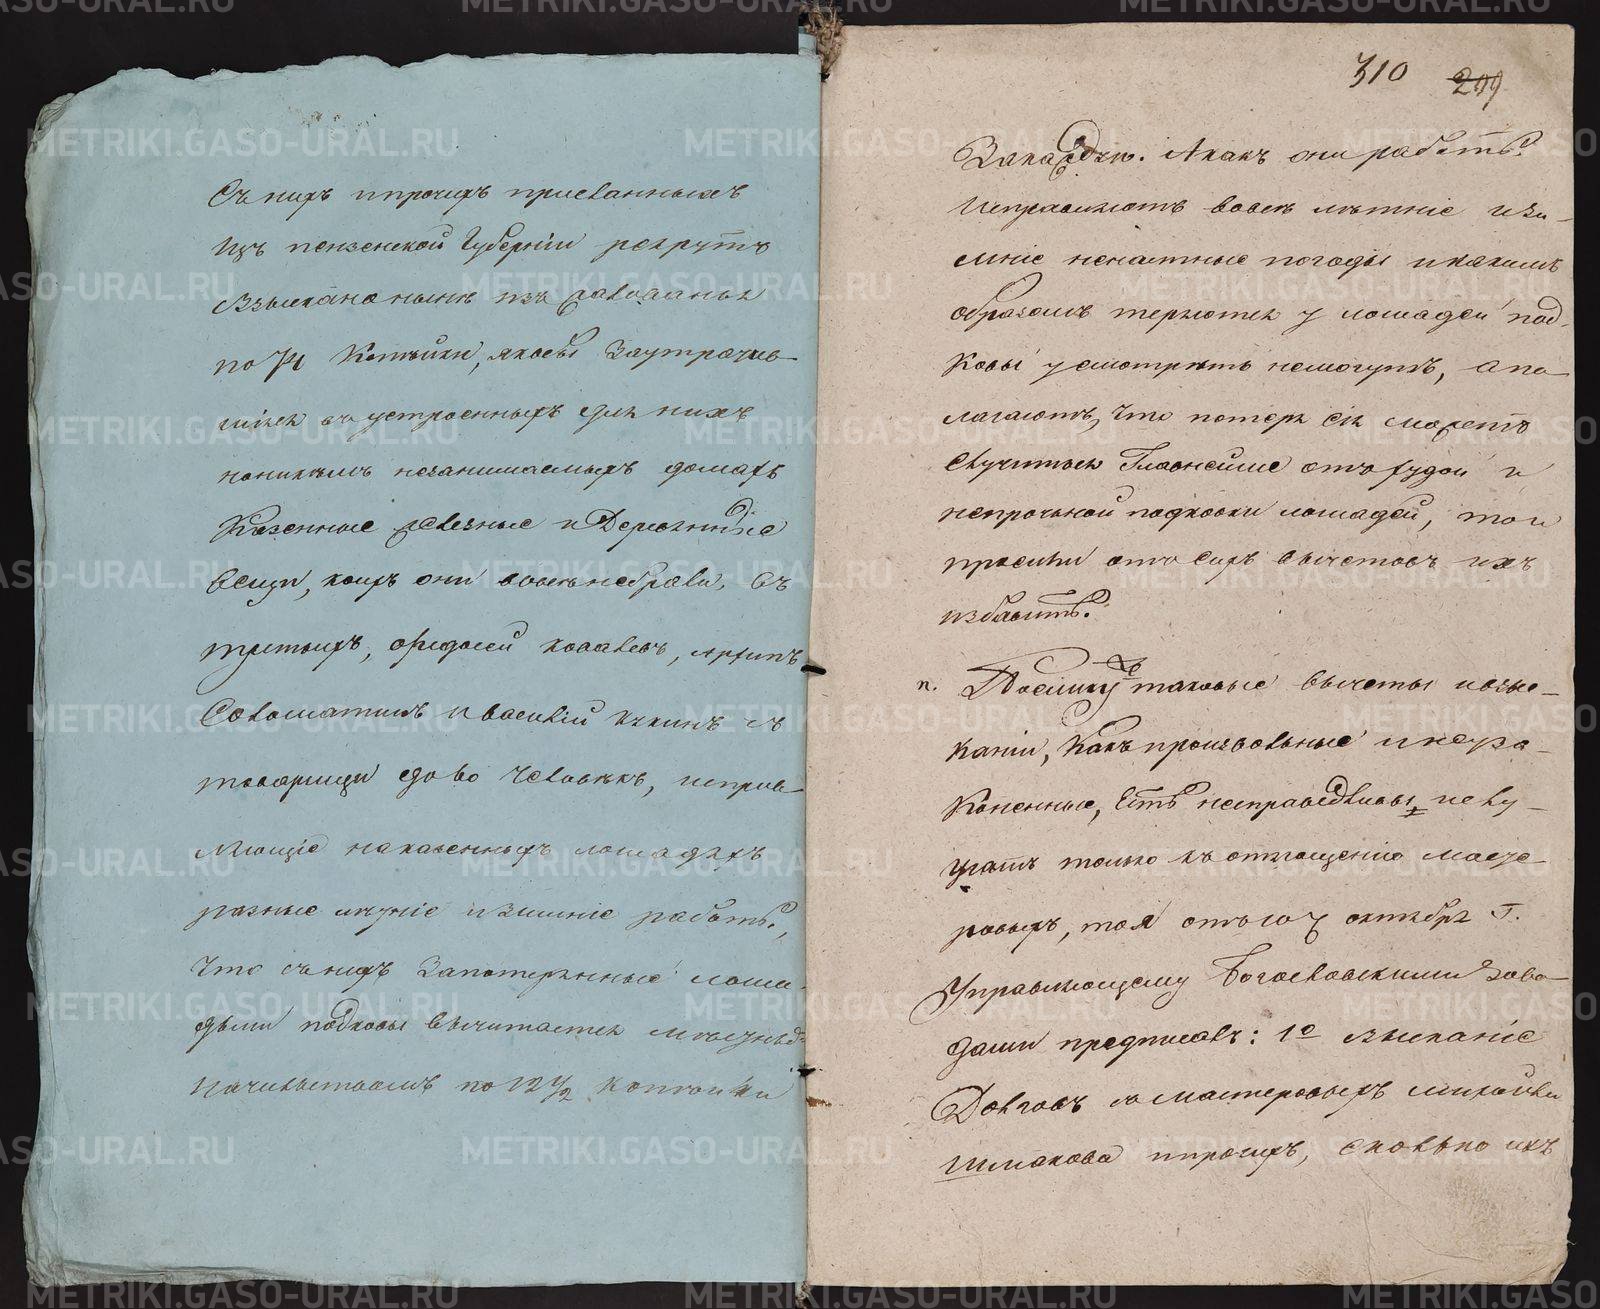 Съ нихъ и прочихъ присланныхъ
изъ пензенской Губерніи рекрутъ
взыскано нынѣ изъ жалованья
по 71 Копѣйки, якобы Заутрачив-
шіяся въ устроенныхъ для нихъ
но никѣмъ незанимаемыхъ домахъ
Казенные желѣзные и Деревянные
вещи, коихъ они вовсе не брали. Въ
третьихъ, Архипъ
и василій съ
товарищи до 60 Человѣкъ, исправ-
ляющіе на казенныхъ лошадяхъ
разные лѣтніе и Зимніе работы,
Что съ нихъ Запотерянные лоша-
дьми подковы вычитается
Начальствомъ по 12 1/2 копѣйки
310 299
Закаждую. А какъ они работы
Исправляютъ вовсе лѣтніе и зи-
мніе ненастные погоды и какимъ
образомъ теряются у лошадей под-
ковы усмотрѣть немогутъ, а по-
лагаютъ, Что потеря сія можетъ
Случиться Главнейше отъ худой и
непрочьной подковки лошадей, то и
просили отъ сихъ вычетовъ ихъ
избавить.
п. Поелику таковые вычеты и взыс-
каніи, Какъ произвольные и неуза-
коненные, Есть несправедливы, и слу-
жатъ только къ отягощенію масте-
ровыхъ, то я отъ 10 октября
Управляющему Богословскими Заво-
дами предписалъ: 1е взысканіе
Долговъ съ мастеровыхъ михайлы
Шмакова и прочихъ, сколько ихъ
METRIKI.GASO-URAL.RU